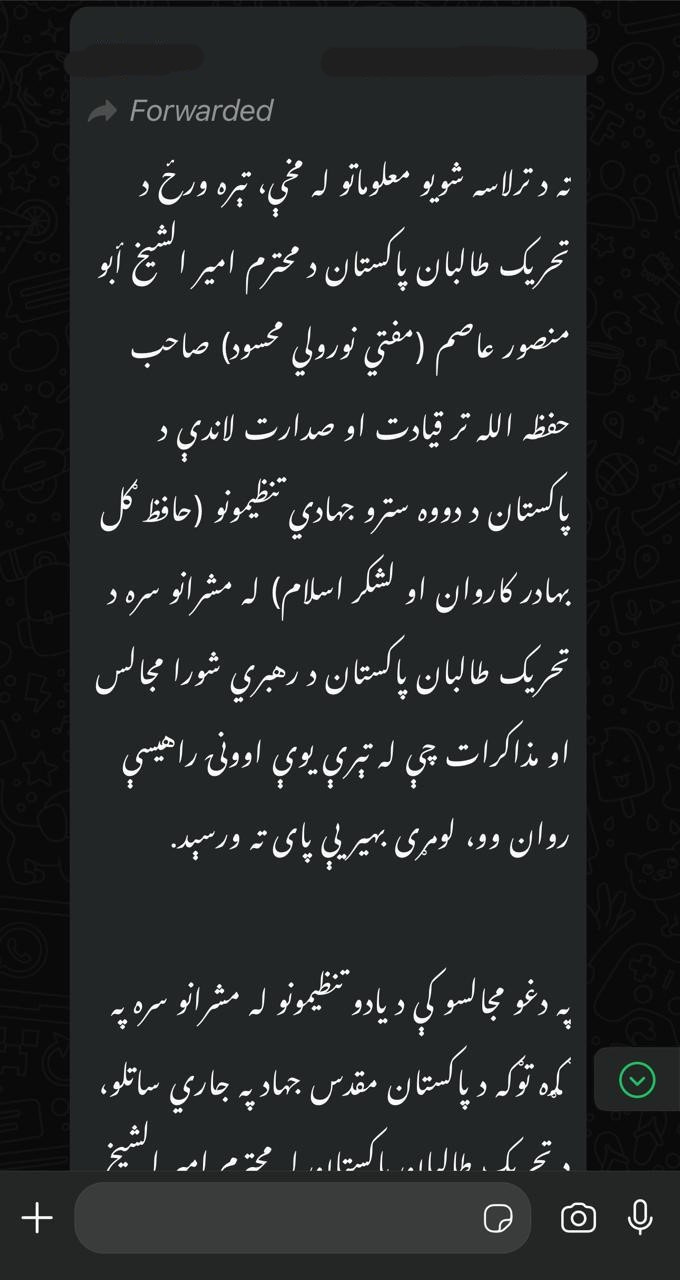 Forwarded
ته د ترلاسه شویو معلوماتو له مخې، تېره ورځ د
تحریک طالبان پاکستان د محترم امیر الشیخ أبو
منصور عاصم (مفتي نورولي محسود) صاحب
حفظه الله تر قیادت او صدارت لاندې د
پاکستان د دووه سترو جهادي تنظیمونو (حافظ ګل
بهادر کاروان او لشکر اسلام) له مشرانو سره د
تحریک طالبان پاکستان د رهبري شورا مجالس
او مذاکرات چې له تېرې یوې اوونۍ راهیسې
روان وو، لومړی بهیر یې پای ته ورسېد.
په دغو مجالسو کې د یادو تنظیمونو له مشرانو سره په
ګډه توګه د پاکستان مقدس جهاد په جاري ساتلو،
د تحریک طالبان پاکستان له محترم امیر الشیخ